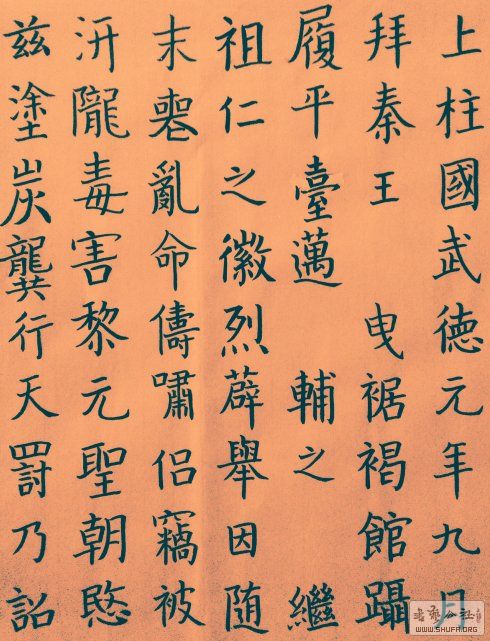 上柱國武德元年九月
拜秦王 曳裾褐館躡
履平臺邁 輔之 繼
祖仁之徽烈薜舉因随
末喪亂命儔嘯侣竊被
汧隴毒害黎元聖朝愍
兹塗炭龔行天罸乃詔
WWW.SHUFA.ORG